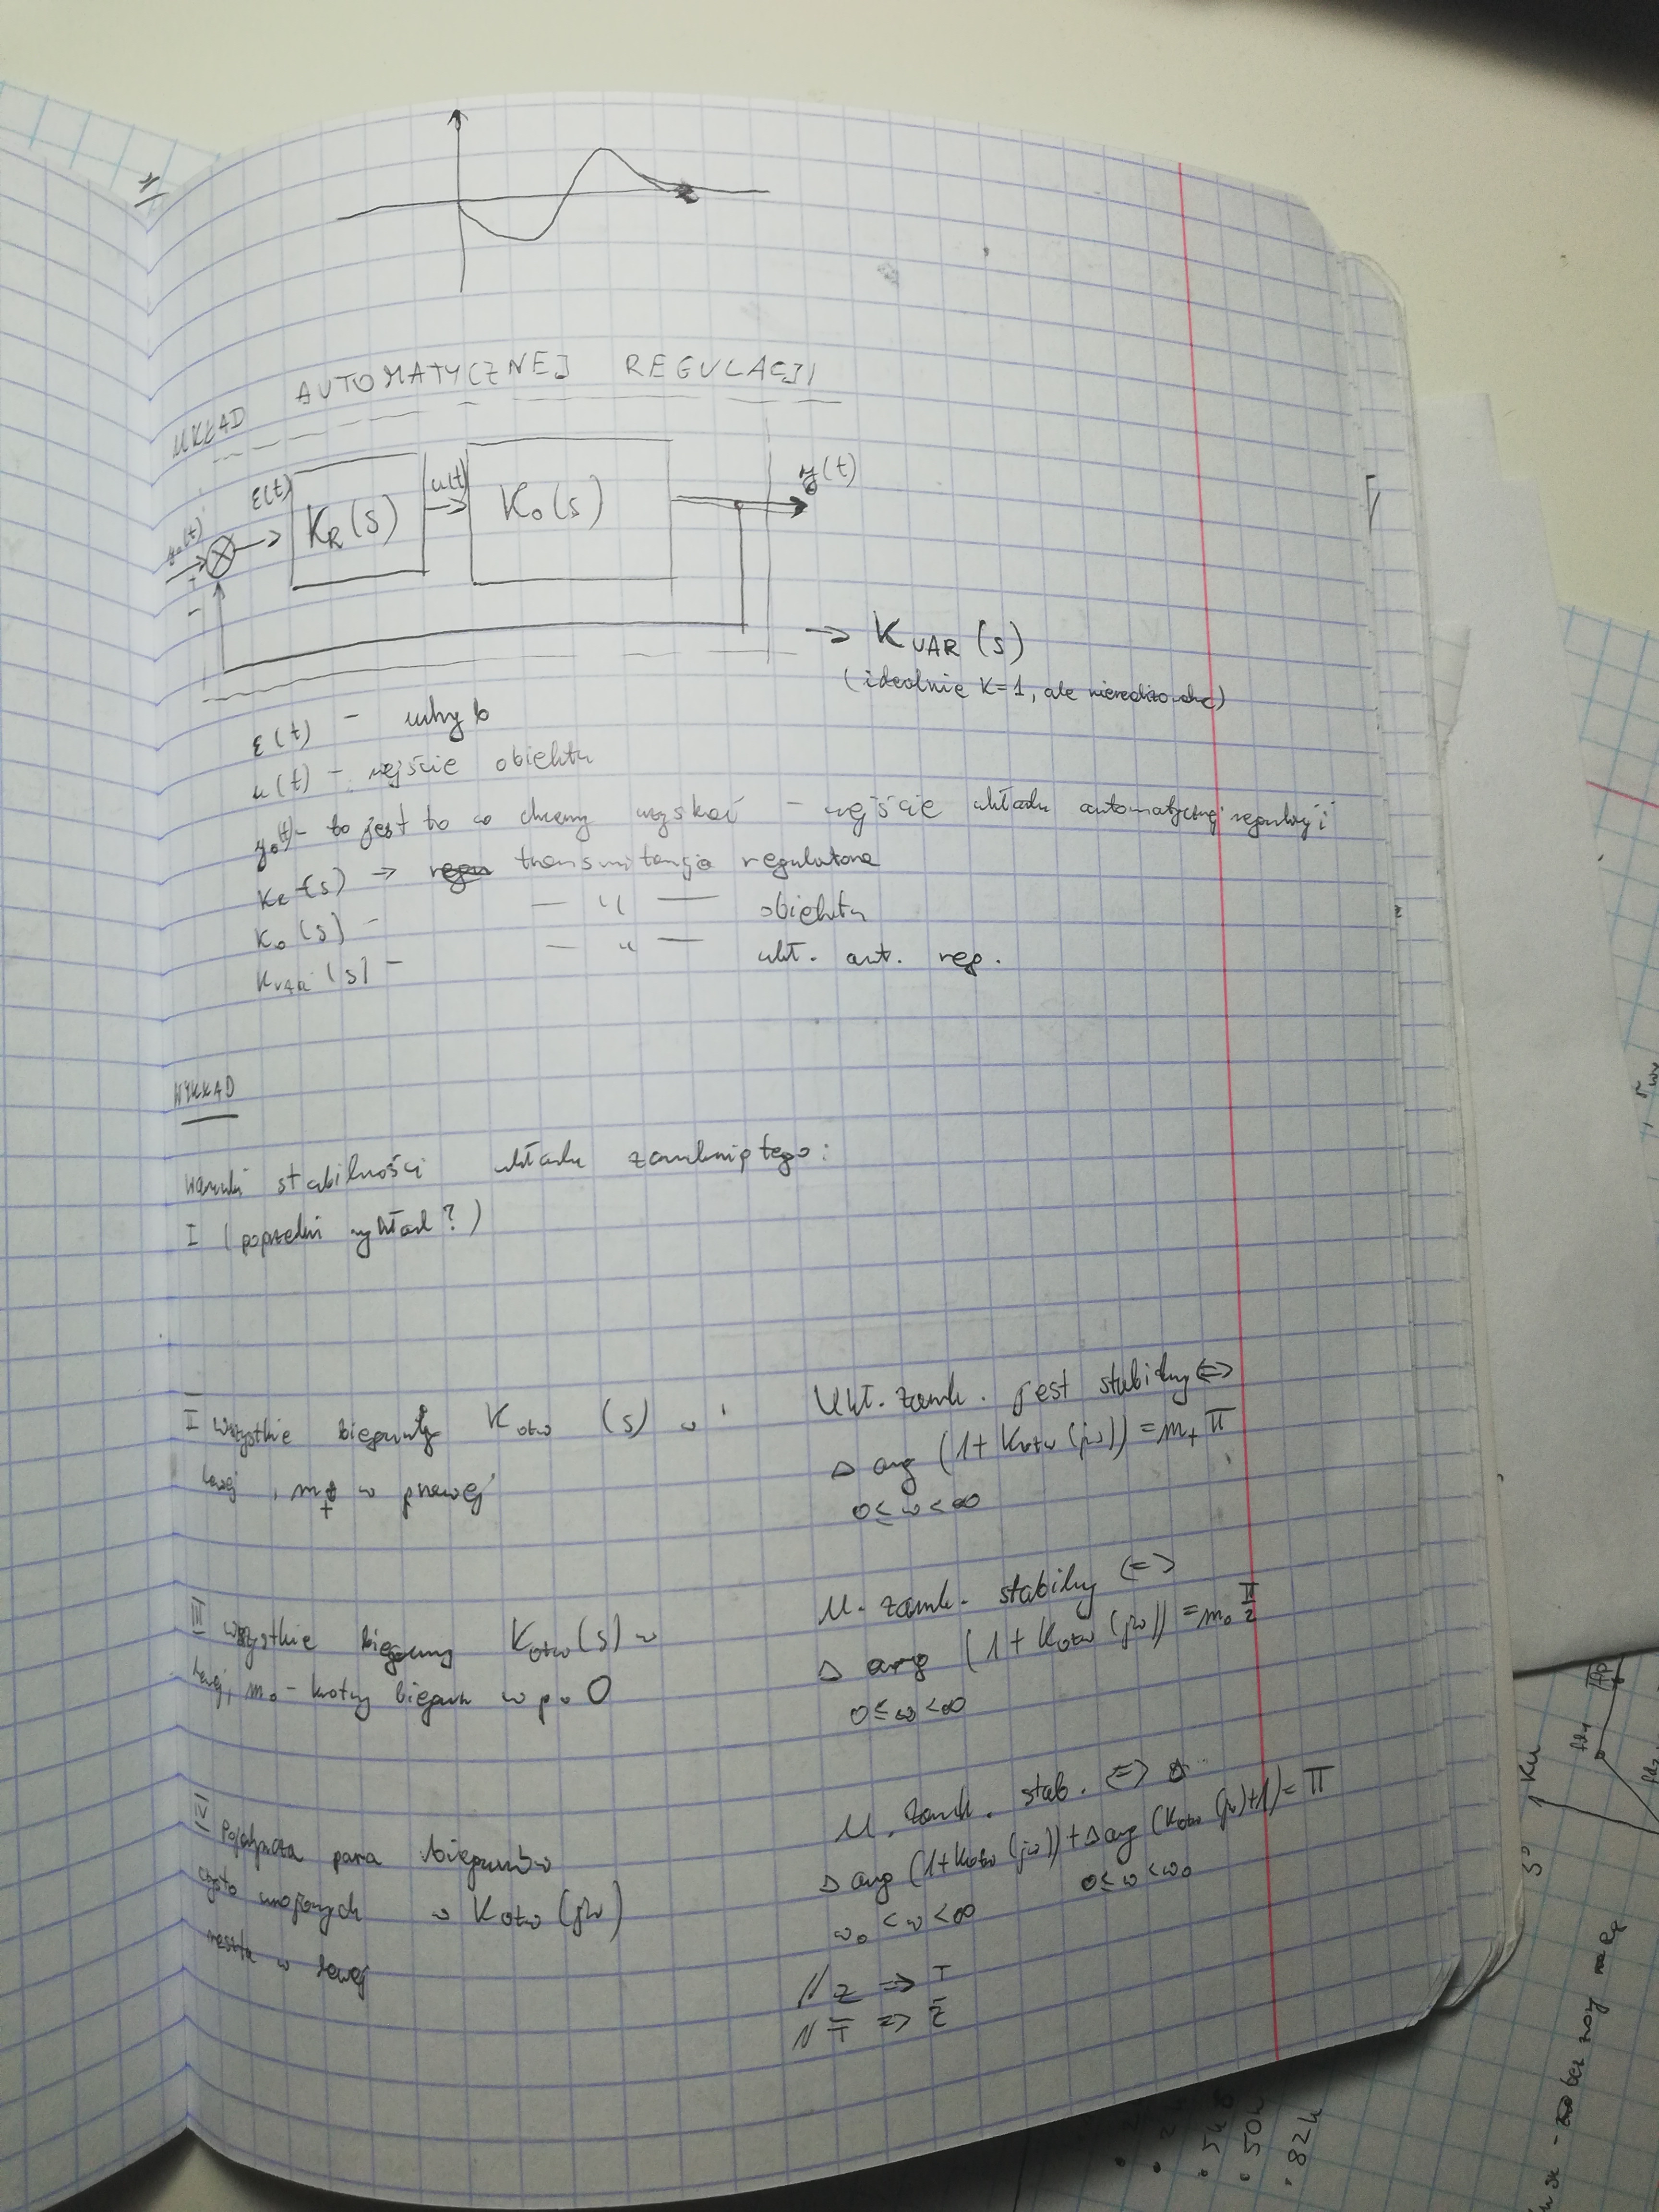 UKŁAD AUTOMATYCZNEJ REGULACJI
y₀(t) ε(t) K_R(s) u(t) K₀(s) y(t)
+
-
→ K_UAR (s)
(idealnie K=1, ale nierealizowalne)
ε(t) - uchyb
u(t) - wejście obiektu
y₀(t) - to jest to co chcemy uzyskać - wejście układu automatycznej regulacji
K_R(s) → transmitancja regulatora
K₀(s) - — " — obiektu
K_UAR(s) - — " — ukł. aut. reg.
WYKŁAD
warunki stabilności układu zamkniętego:
I (poprzedni wykład?)
II wszystkie bieguny K_otw (s) w
lewej, m₊ w prawej
Ukł. zamk. jest stabilny ⇔
Δ arg (1+ K_otw(jω)) = m₊ π
0≤ω<∞
III wszystkie bieguny K_otw(s) w
lewej, m₀ - krotny biegun w p. 0
U. zamk. stabilny ⇔
Δ arg (1+ K_otw (jω)) = m₀ π/2
0≤ω<∞
IV Pojedyncza para biegunów
czysto urojonych w K_otw (jω)
reszta w lewej
U. zamk. stab. ⇔
Δ arg (1+K_otw(jω)) + Δ arg (K_otw(jω)+1) = π
ω₀<ω<∞ 0≤ω<ω₀
// Z ⇒ T
// T̄ ⇒ Z̄
50k
82k